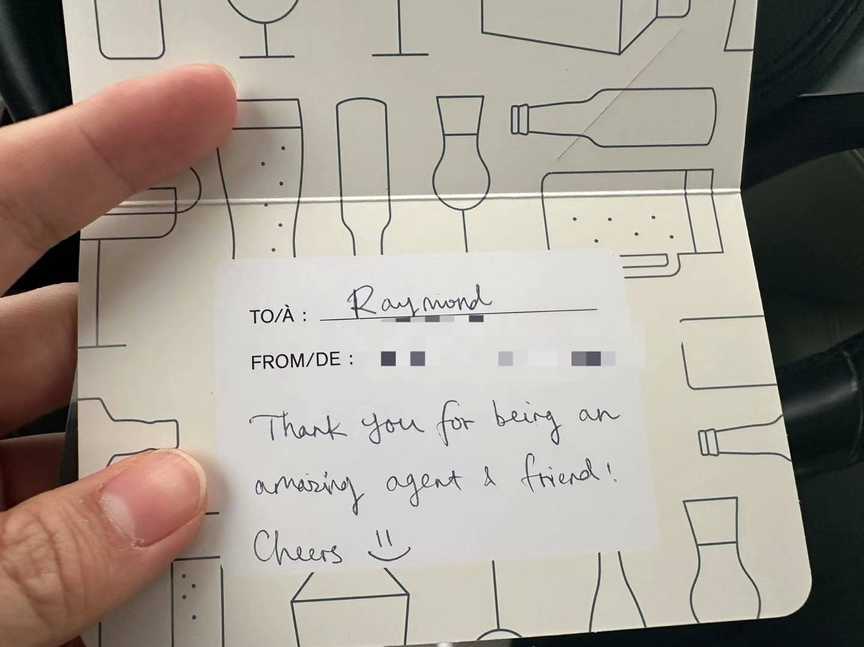 TO/À : Raymond
FROM/DE :
Thank you for being an
amazing agent & friend!
Cheers